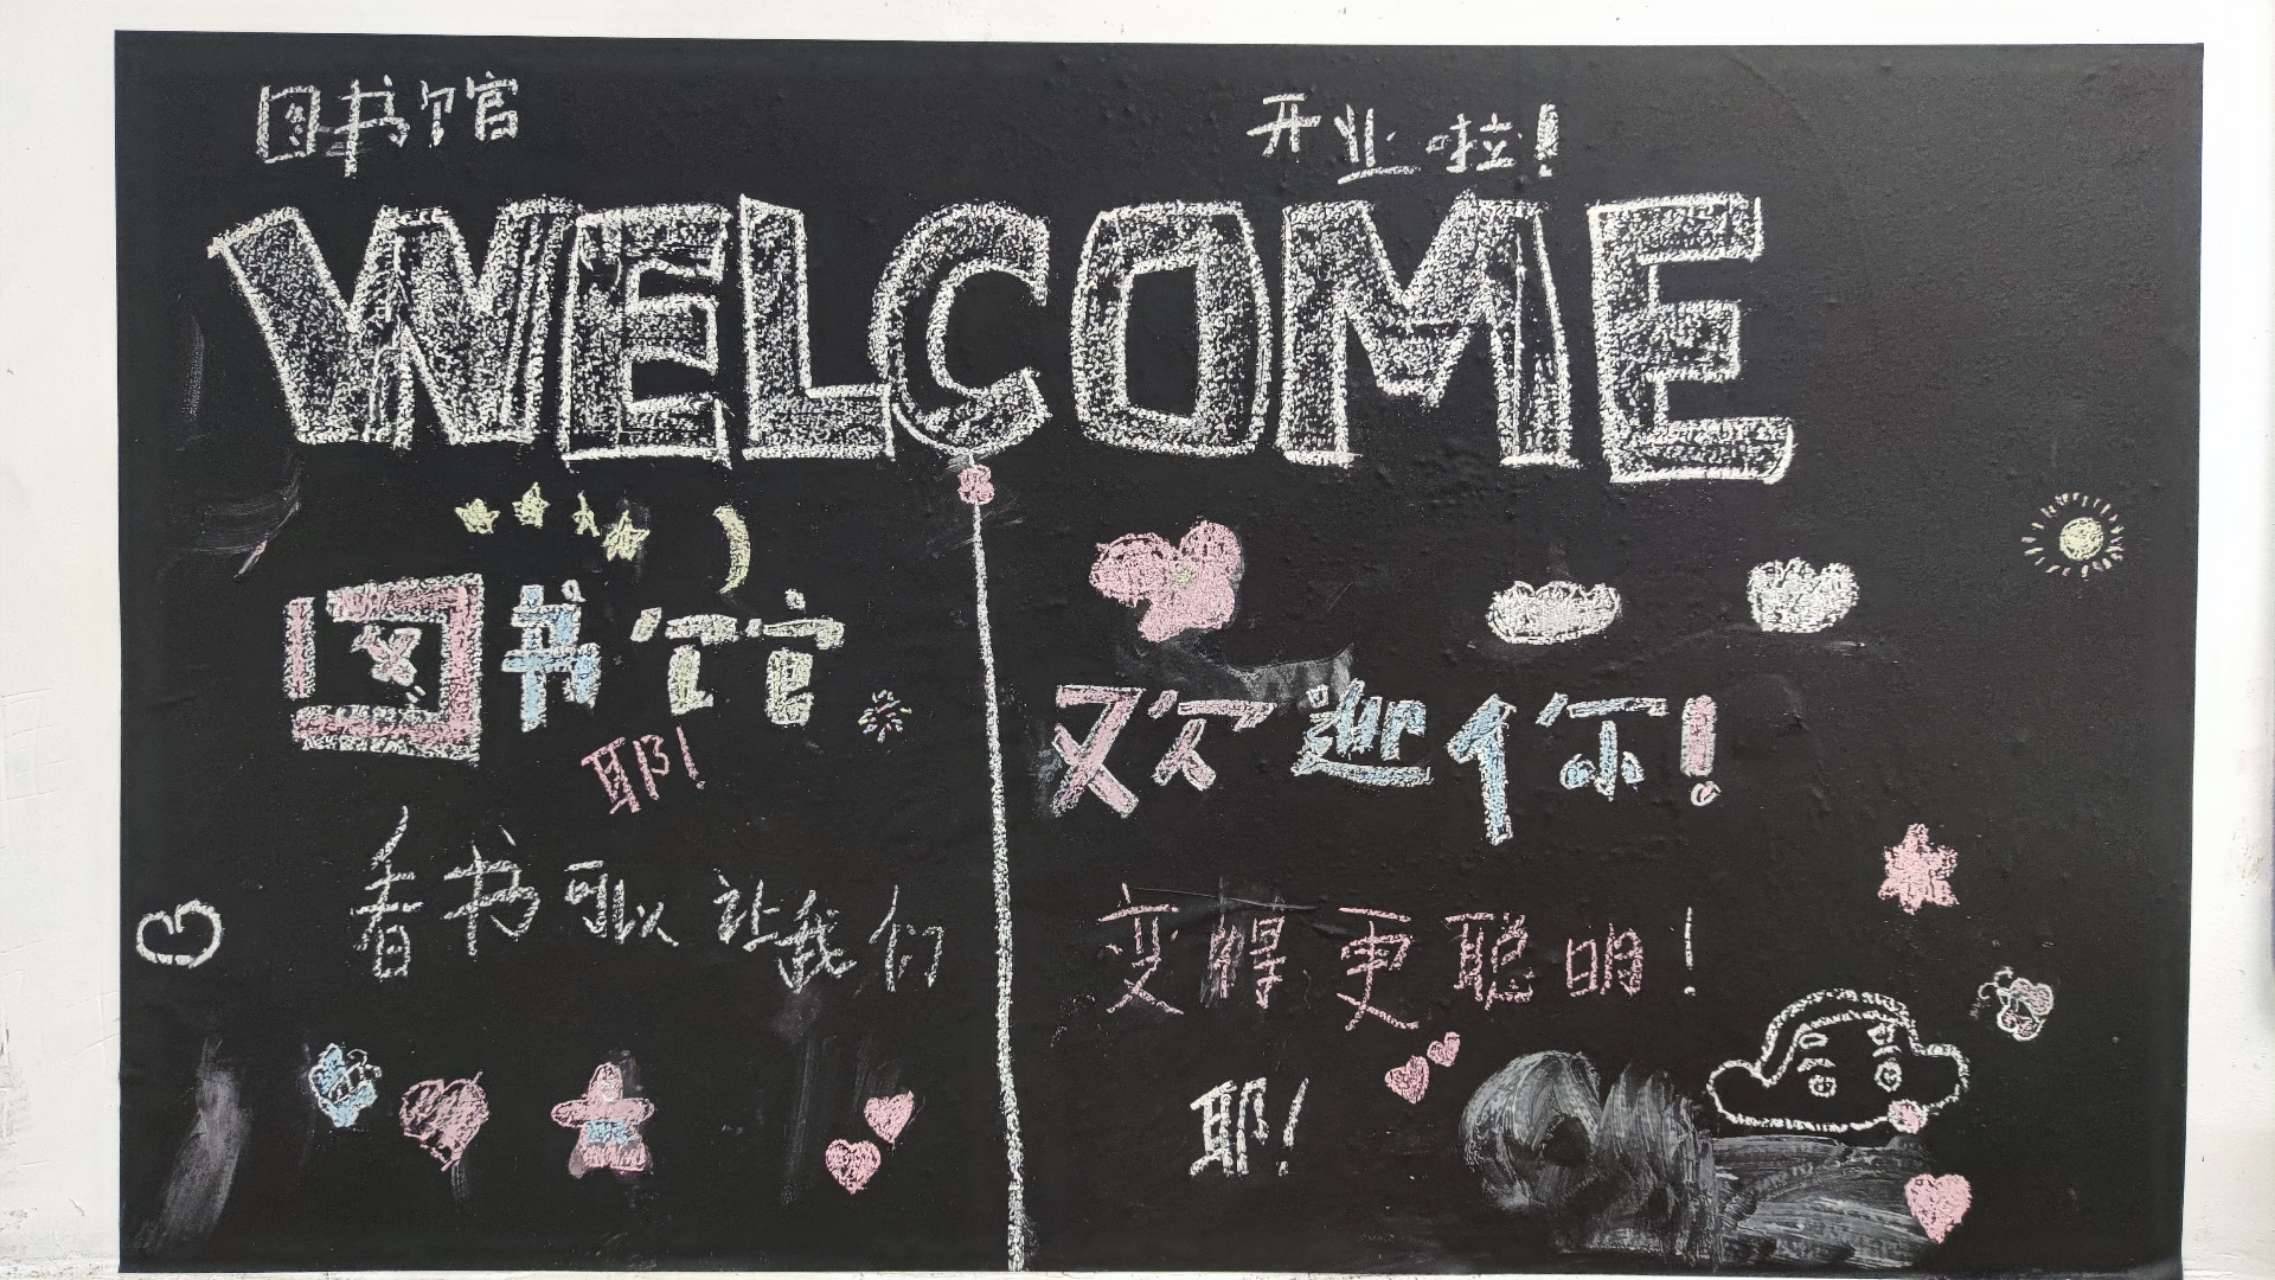 图书馆 开业啦!
WELCOME
图书馆
耶!
欢迎你!
看书可以让我们
变得更聪明!
耶!